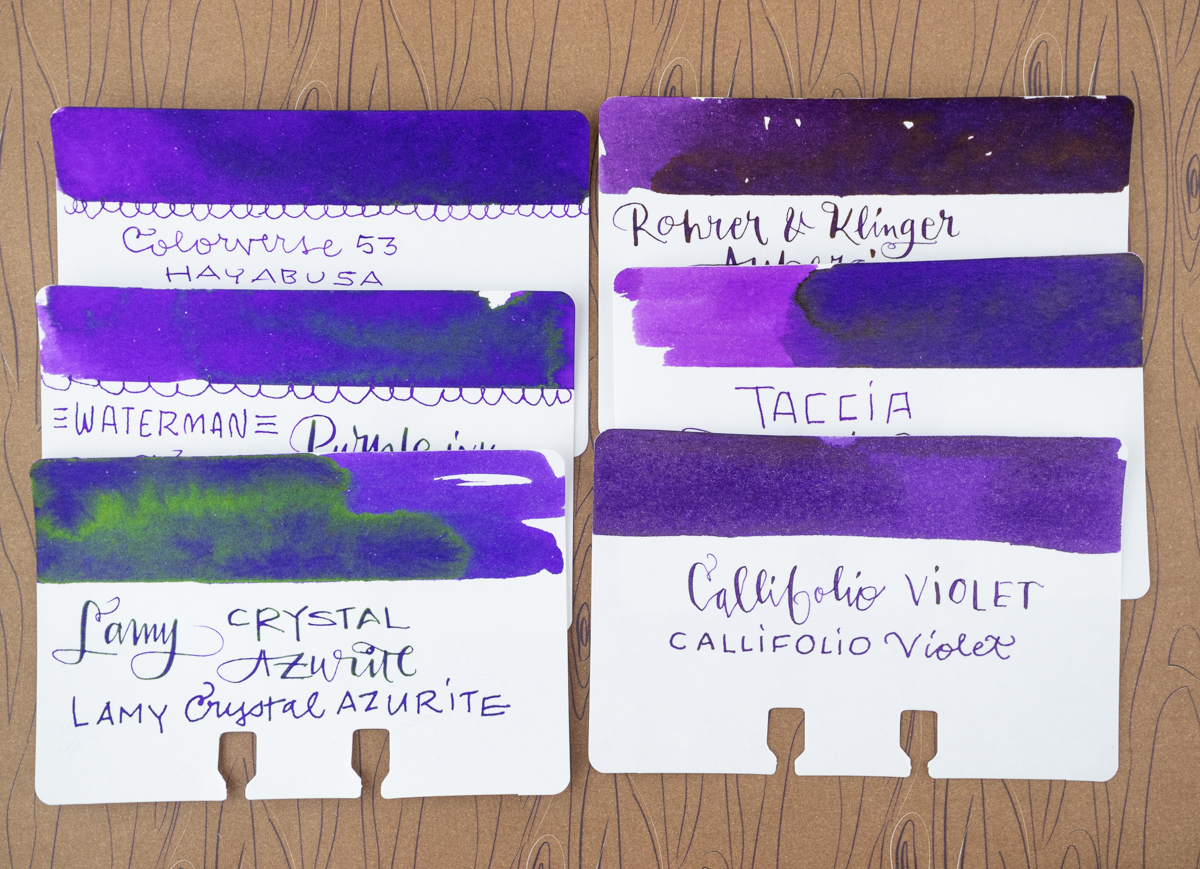 Colorverse 53
HAYABUSA
WATERMAN Purple ink
Lamy CRYSTAL
Azurite
LAMY Crystal AZURITE
Rohrer & Klinger
TACCIA
Callifolio VIOLET
CALLIFOLIO Violet